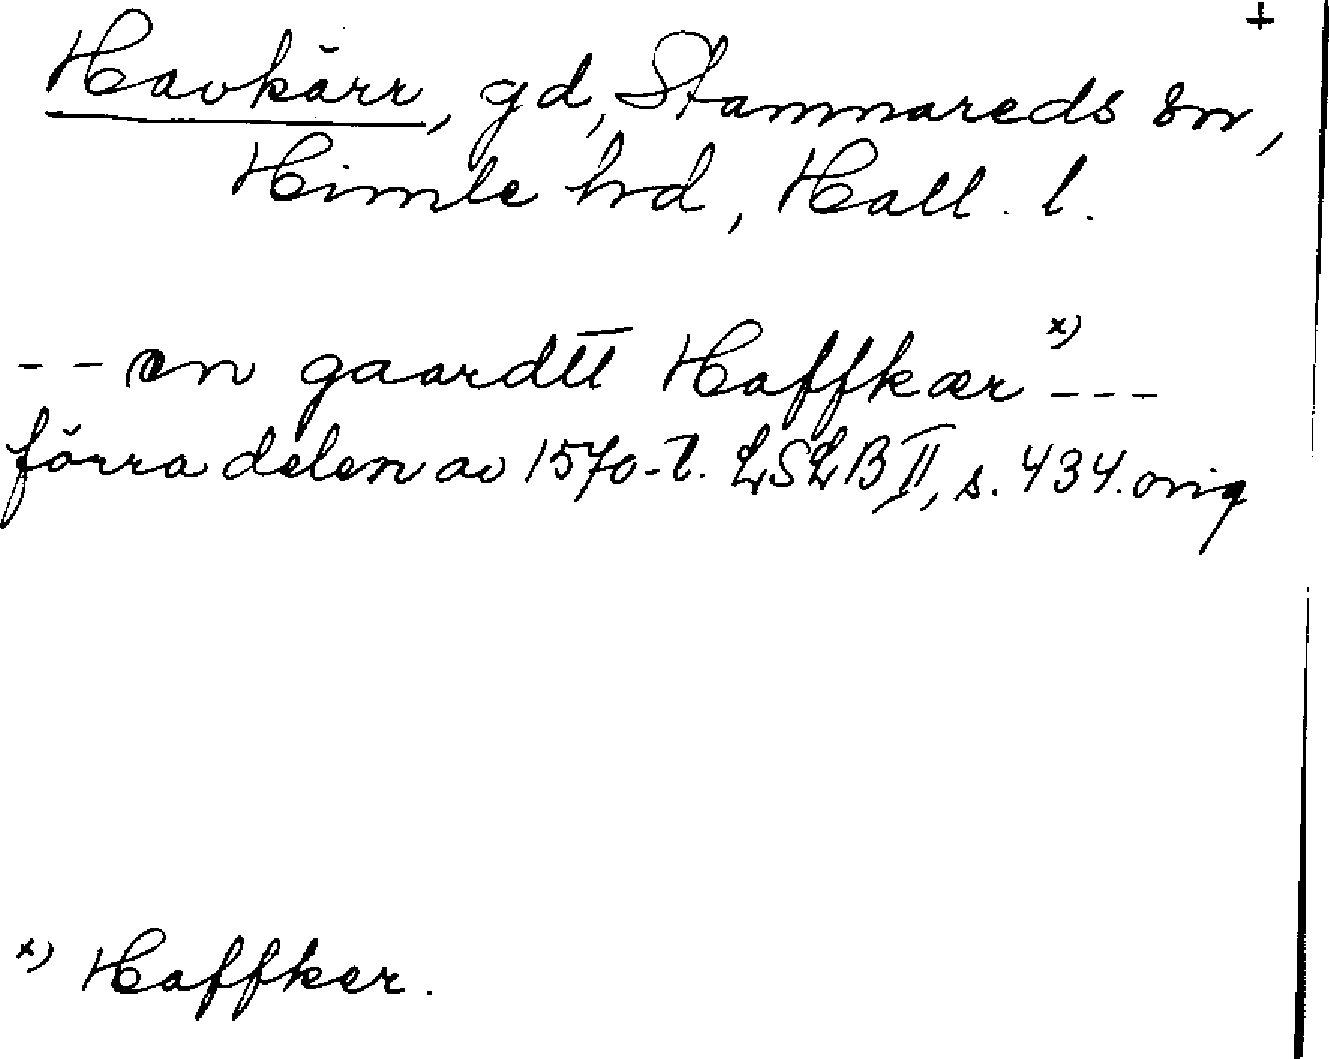 +
Havkärr, gd, Stamnareds sn,
Himle hd, Hall. l.
-- en gaardtt Haffkær x) ---
förra delen av 1570-t. LSLB II, s. 434. orig
x) Haffker.